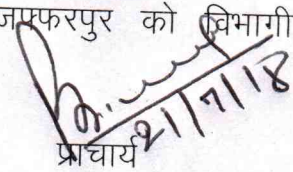 जफ्फरपुर को विभागी
21/7/18
प्राचार्य